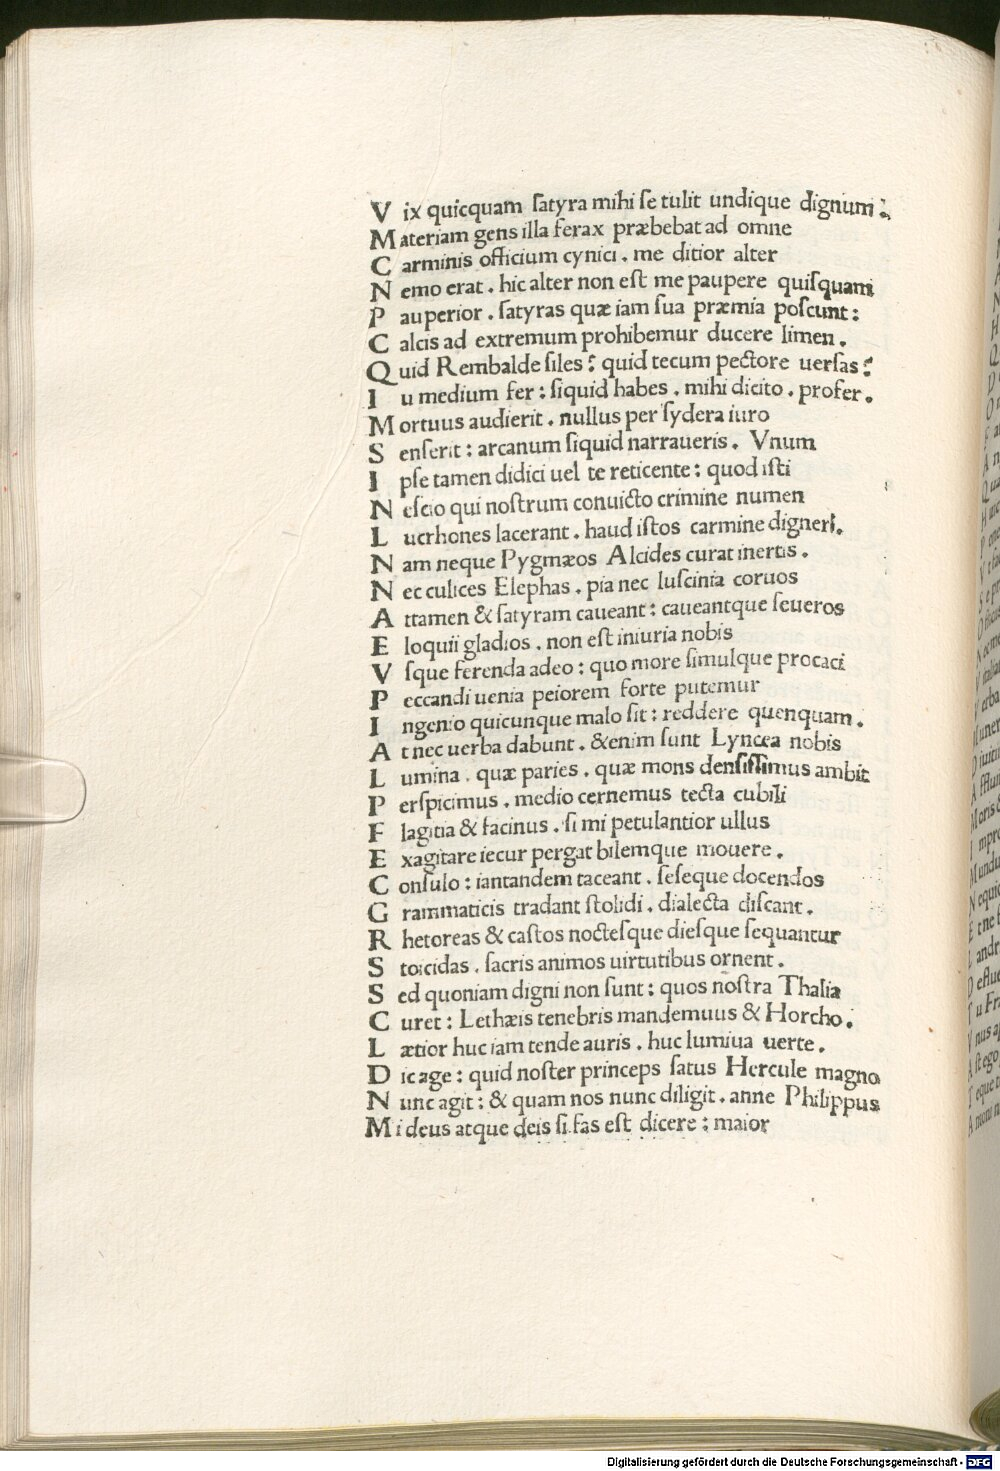 V ix quicquam ſatyra mihi ſe tulit undique dignum:
M ateriam gens illa ferax præbebat ad omne
C arminis officium cynici . me ditior alter
N emo erat . hic alter non eſt me paupere quiſquam
P auperior . ſatyras quæ iam ſua præmia poſcunt :
C alcis ad extremum prohibemur ducere limen .
Q uid Rembalde ſiles ? quid tecum pectore uerſas ?
I u medium fer : ſiquid habes . mihi dicito . profer .
M ortuus audierit . nullus per ſydera iuro
S enſerit : arcanum ſiquid narraueris . Vnum
I pſe tamen didici uel te reticente : quod iſti
N eſcio qui noſtrum conuicto crimine numen
L ucrhones lacerant . haud iſtos carmine digner .
N am neque Pygmæos Alcides curat inertis .
N ec culices Elephas . pia nec luſcinia coruos
A ttamen & ſatyram caueant : caueantque ſeueros
E loquii gladios . non eſt iniuria nobis
V ſque ferenda adeo : quo more ſimulque procaci
P eccandi uenia peiorem forte putemur
I ngenio quicunque malo ſit : reddere quenquam .
A t nec uerba dabunt . &enim ſunt Lyncea nobis
L umina . quæ paries . quæ mons denſiſſimus ambit
P erſpicimus . medio cernemus tecta cubili
F lagitia & facinus . ſi mi petulantior ullus
E xagitare iecur pergat bilemque mouere .
C onſulo : iantandem taceant . ſeſeque docendos
G rammaticis tradant ſtolidi . dialecta diſcant .
R hetoreas & caſtos nocteſque dieſque ſequantur
S toicidas . ſacris animos uirtutibus ornent .
S ed quoniam digni non ſunt : quos noſtra Thalia
C uret : Lethæis tenebris mandemuus & Horcho .
L ætior huc iam tende auris . huc lumiua uerte .
D ic age : quid noſter princeps ſatus Hercule magno
N unc agit : & quam nos nunc diligit . anne Philippus
M i deus atque deis ſi fas eſt dicere : maior
Digitalisierung gefördert durch die Deutsche Forschungsgemeinschaft - DFG